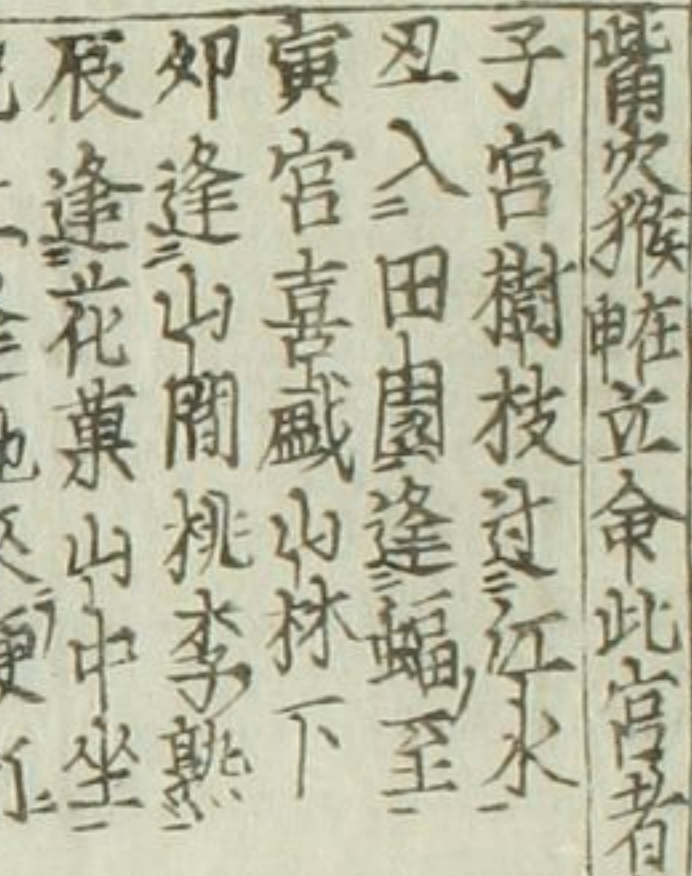 觜宿火猴申在立命此宮者
子宮樹枝过江水
丑入田園逢蝠至
寅宮喜戯山林下
卯逢山間桃李熟
辰逢花菓山中坐